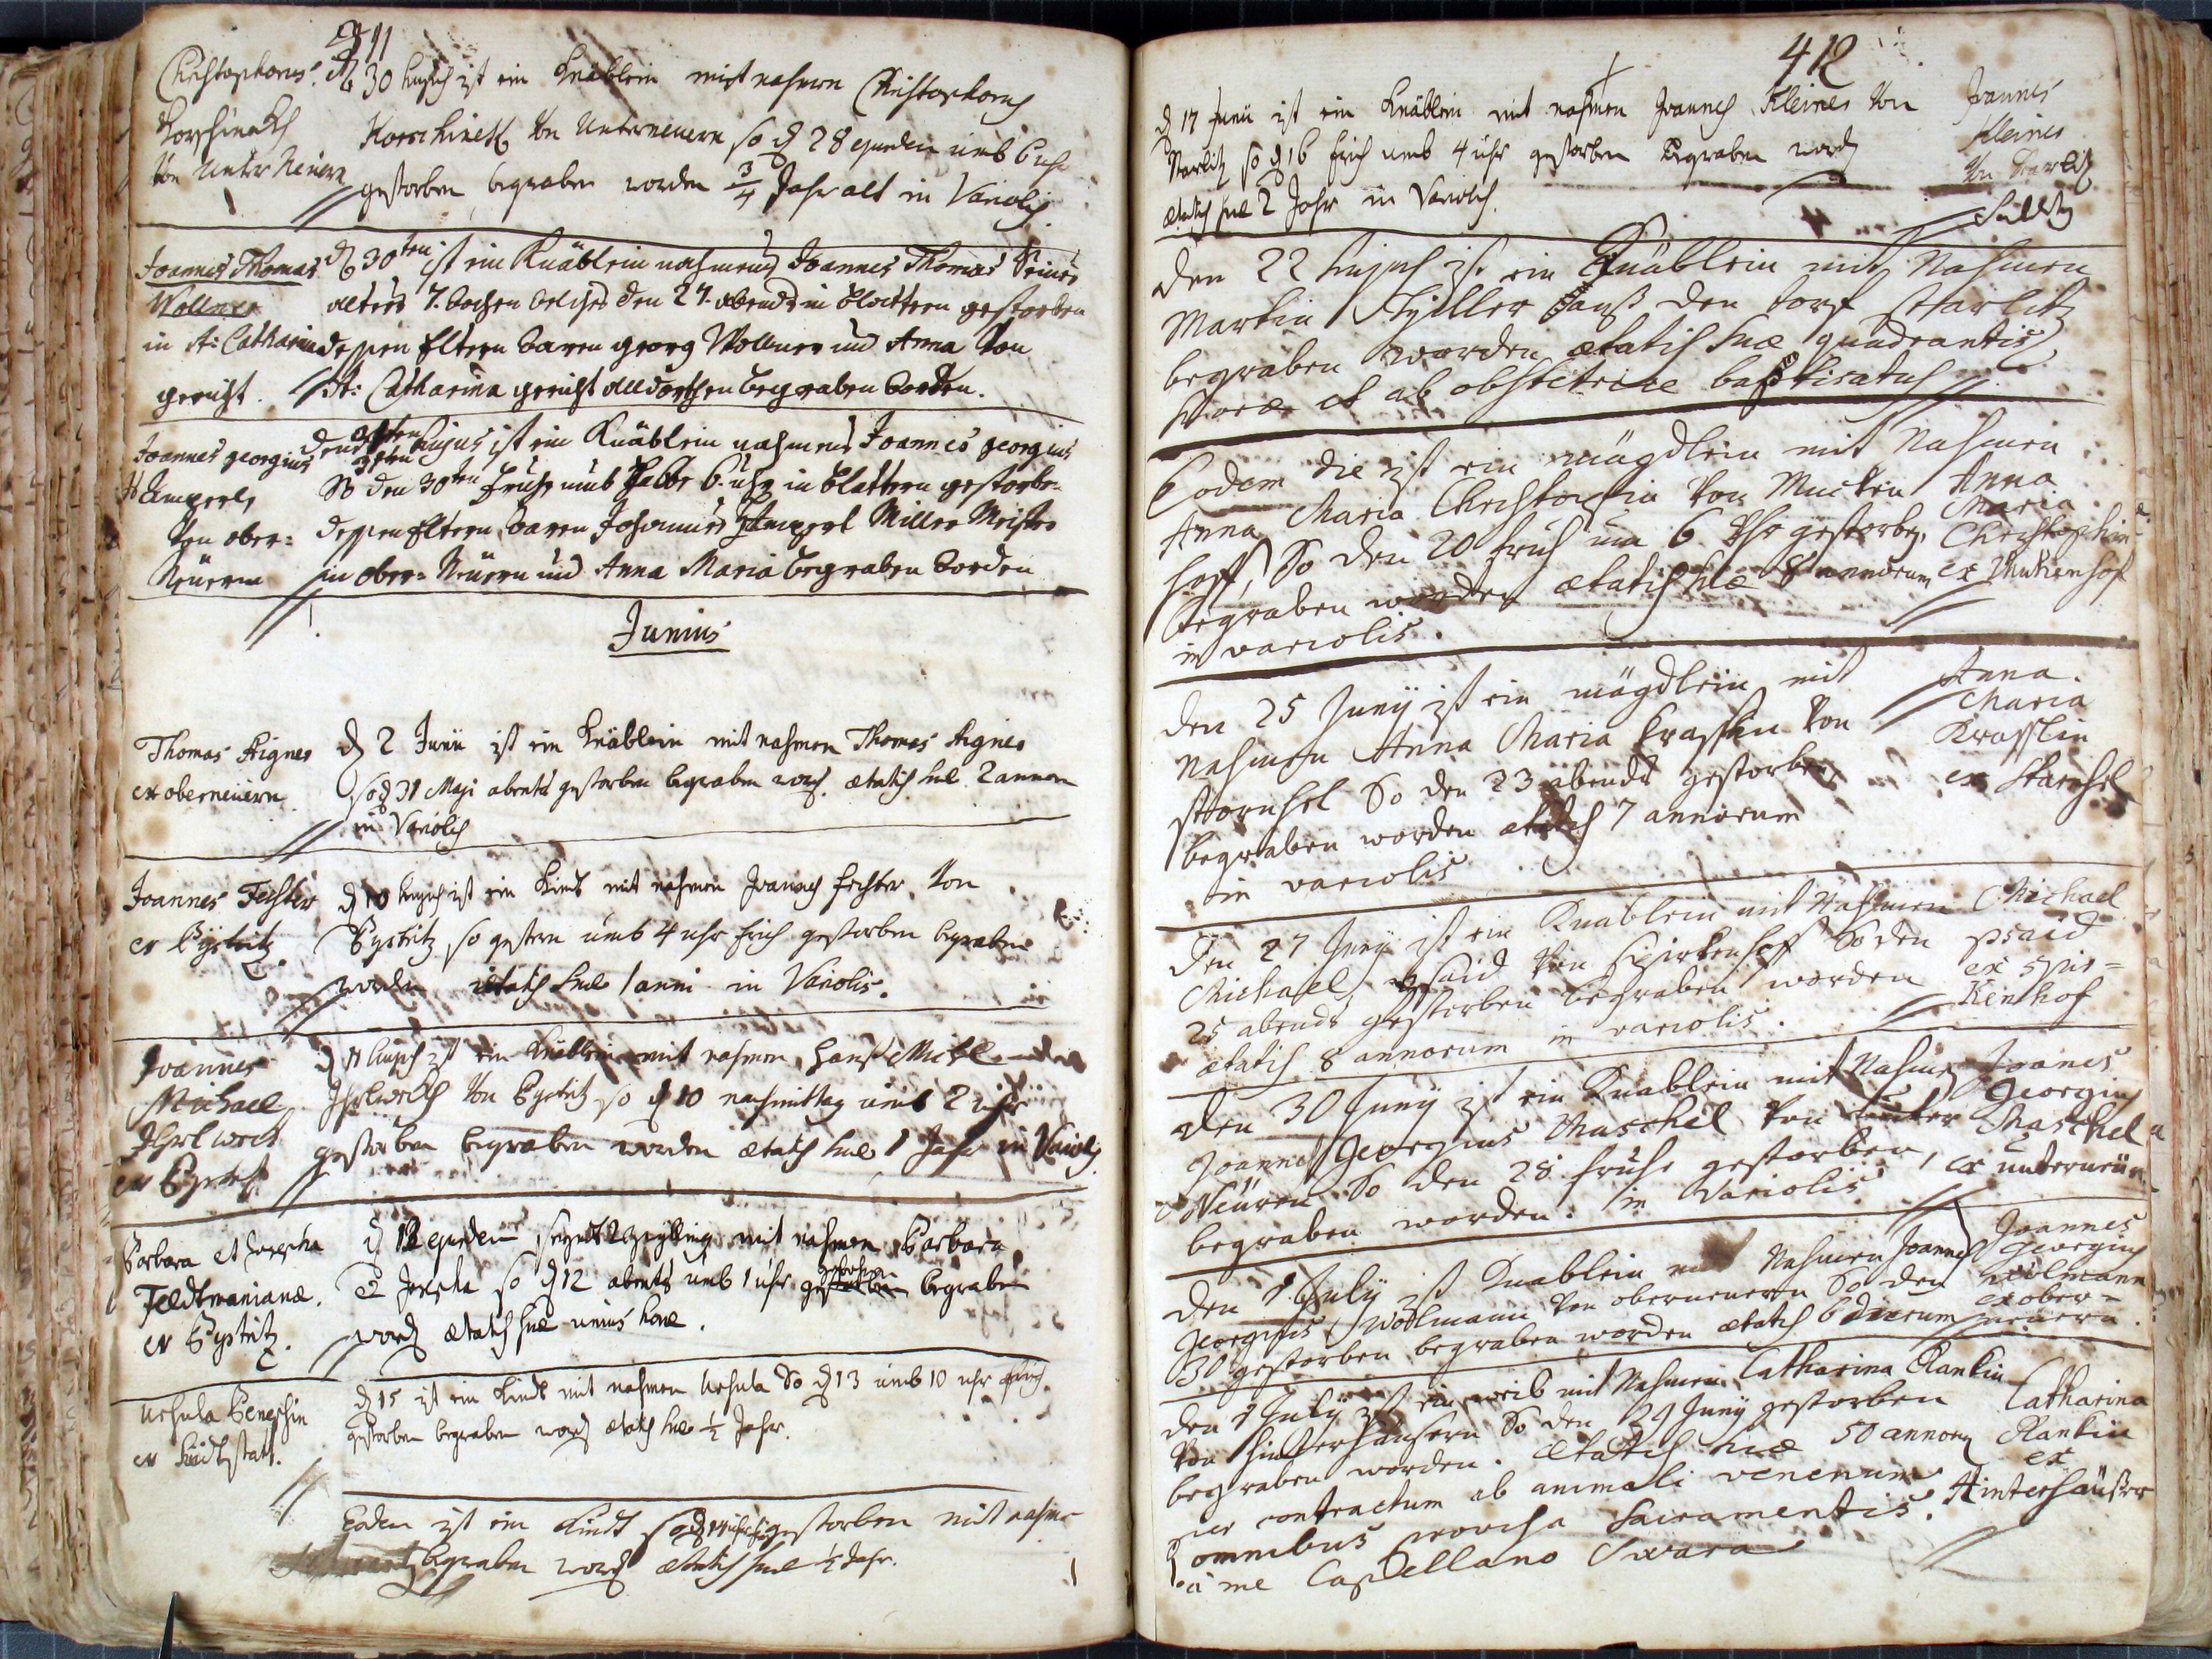 411
Christophorus
Korschineck
Von Unter Neuern
d 30 hujus ist ein Knäblein mit nahmen Christophorus
Korschineck Von Unterneuern so d 28 ejusdem umb 6 uhr
gestorben, begraben worden 3/4 Jahr alt in Variolis
Joannes Thomas
Wollner
in St: Catharina
gericht.
d 30ten ist ein Knäblein nahmens Joannes Thomas Seines
alters 7. wochen welches den 27. abends in blattern gestorben
dessen Eltern waren georg Wollner und Anna Von
St: Catharina gericht alldorthen begraben worden.
Joannes georgius
Von ober:
Neüern
hujus ist ein Knäblein nahmens Joannes georgius
So den 30ten Fruhe umb halbe 6. uhr in blattern gestorben
dessen Eltern waren Johannes Miller Meister
in ober: Neüern und Anna Maria begraben worden
Junius
Thomas Aigner
ex oberneüern
d 2 Junii ist ein Knäblein mit nahmen Thomas Aigner
so d 31 Maji abents gestorben begraben word. ætatis suæ 2 annorum
in Variolis
Joannes Fechter
ex Bystritz.
d 10 hujus ist ein Kindt mit nahmen Joannes fechter Von
Bystritz so gestern umb 4 uhr frich gestorben begraben
worden ætatis suæ 1 anni in Variolis.
Joannes
Michael
ex Bystritz
d 11 hujus ist ein Knäblein mit nahmen Hanß Michl
Von Bystritz so d 10 nachmittag umb 2 uhr
gestorben begraben worden ætatis suæ 1 Jahr in Variolis
Barbara et Josepha
Feldtmanianæ.
ex Bystritz.
d 12 ejusdem seynd 2 zwilling mit nahmen Barbara
et Josepha so d 12 abents umb 1 uhr gestorben begraben
word ætatis suæ unius horæ.
Ursula
d 15 ist ein Kindt mit nahmen Ursula So d 13 umb 10 uhr frich
gestorben begraben word ætatis suæ 1/2 Jahr.
Eodem ist ein Kindt gestorben mit nahme
begraben word ætatis suæ 1/2 Jahr.
412
d 17 Junii ist ein Knäblein mit nahmen Joannes Kleines Von
Starlitz so d 16 frich umb 4 uhr gestorben begraben word
ætatis suæ 2 Jahr in Variolis.
Joannes
Kleines
Von Starlitz
den 22 hujus ist ein Knäblein mit Nahmen
Martin auß den dorf Starlitz
begraben worden ætatis suæ quadrantis
horæ et ab obstetrice baptisatus
Eodem die ist ein mägdlein mit Nahmen
Anna Maria Christophin Von Mucken
hoff, So den 20 fruh um 6 Uhr gestorben,
begraben worden ætatis suæ 8 annorum
in variolis.
Anna
Maria
Christophin
ex Mukenhof
den 25 Junÿ ist ein mägdlein mit
Nahmen Anna Maria Krasslin Von
So den 23 abends gestorben
begraben worden ætatis 7 annorum
in variolis
Anna
Maria
Krasslin
ex
den 27 Junÿ ist ein Knablein mit Nahmen
Michael Von So den
25 abends gestorben begraben worden
ætatis 8 annorum in variolis.
Michael
ex Spir=
Kenhof
den 30 Junÿ ist ein Knablein mit Nahmen
Joannes Georgius Maschel Von unter
Neüren So den 28 fruhe gestorben,
begraben worden. in Variolis
Joanes
Georgius
Maschel
ex unterneüren
den 1 July ist Knablein mit Nahmen Joannes
Georgius Wollmann Von oberneuern So den
30 gestorben begraben worden ætatis 6 dierum
Joannes
Georgius
Wolmann
ex ober=
neuern
den 1 Julÿ ist ein weib mit Nahmen Catharina Rankin
Von Hinterhäusern So den 29 Junÿ gestorben
begraben worden. ætatis suæ 50 annorum
per contractum ab animali venenum
omnibus provisa Sacramentis.
à me Capellano Swara
Catharina
Rankin
ex
Hinterhäusern